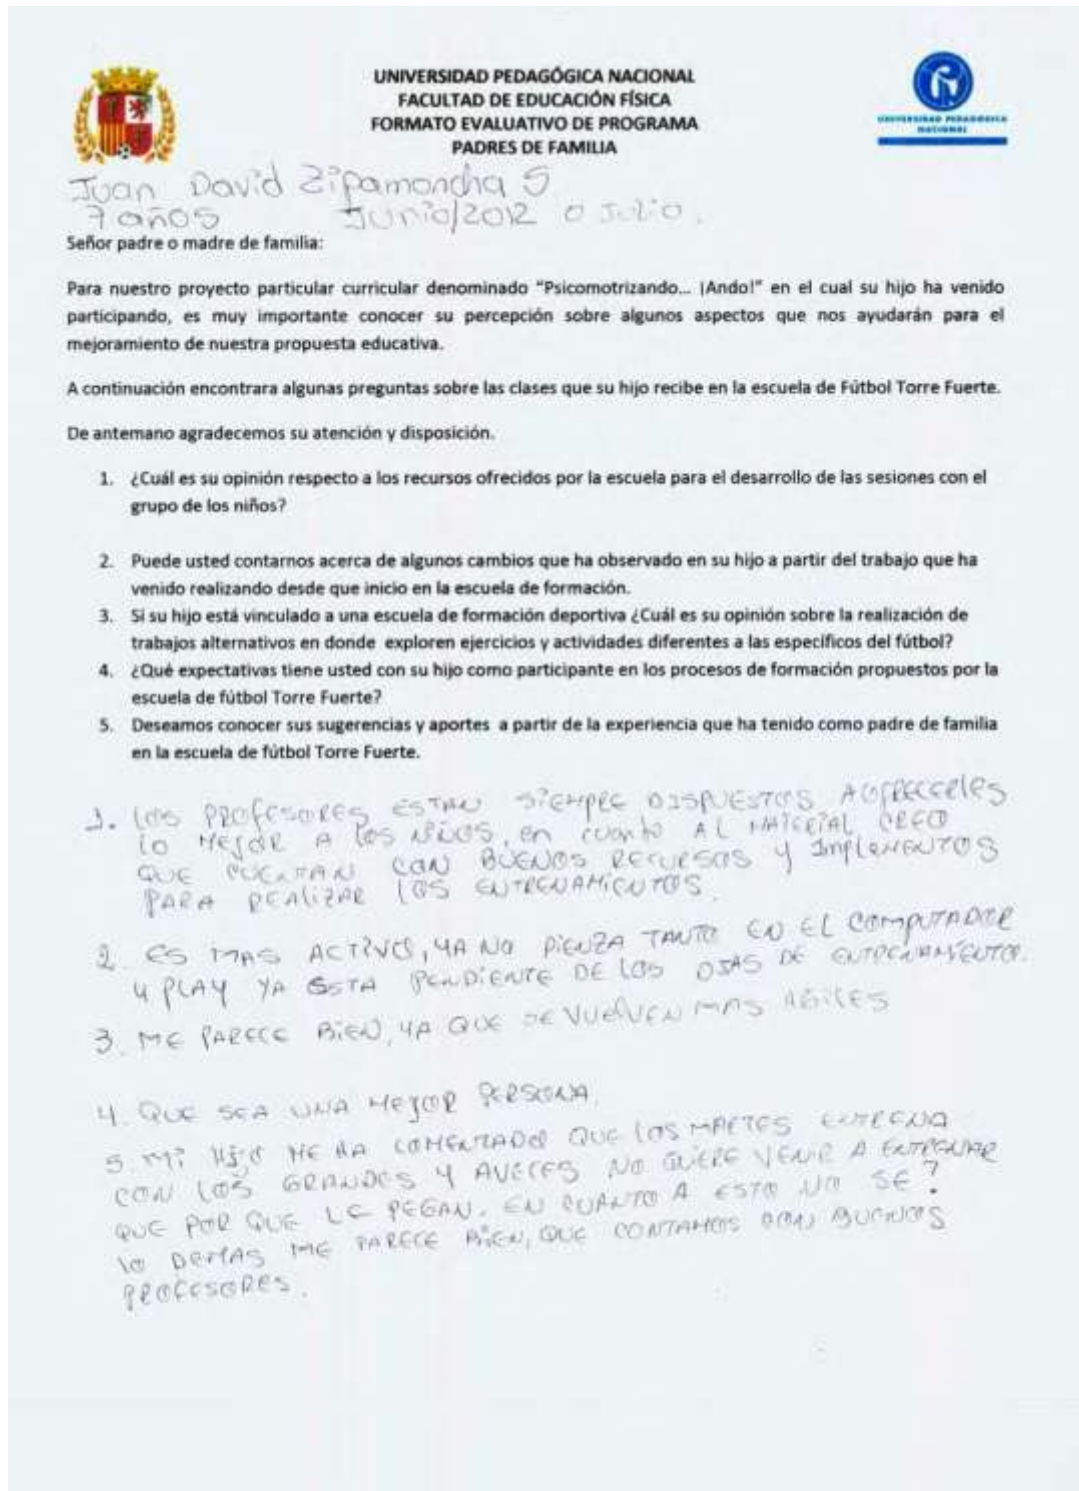 UNIVERSIDAD PEDAGÓGICA NACIONAL
FACULTAD DE EDUCACIÓN FÍSICA
FORMATO EVALUATIVO DE PROGRAMA
PADRES DE FAMILIA
UNIVERSIDAD PEDAGOGICA
NACIONAL
Juan David Zipamoncha S
7 años Junio/2012 o Julio.
Señor padre o madre de familia:
Para nuestro proyecto particular curricular denominado “Psicomotrizando... ¡Ando!” en el cual su hijo ha venido
participando, es muy importante conocer su percepción sobre algunos aspectos que nos ayudarán para el
mejoramiento de nuestra propuesta educativa.
A continuación encontrara algunas preguntas sobre las clases que su hijo recibe en la escuela de Fútbol Torre Fuerte.
De antemano agradecemos su atención y disposición.
1. ¿Cuál es su opinión respecto a los recursos ofrecidos por la escuela para el desarrollo de las sesiones con el
grupo de los niños?
2. Puede usted contarnos acerca de algunos cambios que ha observado en su hijo a partir del trabajo que ha
venido realizando desde que inicio en la escuela de formación.
3. Si su hijo está vinculado a una escuela de formación deportiva ¿Cuál es su opinión sobre la realización de
trabajos alternativos en donde exploren ejercicios y actividades diferentes a las específicos del fútbol?
4. ¿Qué expectativas tiene usted con su hijo como participante en los procesos de formación propuestos por la
escuela de fútbol Torre Fuerte?
5. Deseamos conocer sus sugerencias y aportes a partir de la experiencia que ha tenido como padre de familia
en la escuela de fútbol Torre Fuerte.
1. LOS PROFESORES ESTAN SIEMPRE DISPUESTOS A OFRECERLES
LO MEJOR A LOS NIÑOS, en cuanto AL MATERIAL CREO
QUE CUENTAN CON BUENOS RECURSOS Y IMPLEMENTOS
PARA REALIZAR LOS ENTRENAMIENTOS.
2. ES MAS ACTIVO, YA NO PIENZA TANTO EN EL COMPUTADOR
Y PLAY YA ESTA PENDIENTE DE LOS DIAS DE ENTRENAMIENTO.
3. ME PARECE BIEN, YA QUE SE VUELVEN MAS AGILES
4. QUE SEA UNA MEJOR PERSONA.
5. MI HIJO ME HA COMENTADO QUE LOS MARTES ENTRENA
CON LOS GRANDES Y AVECES NO QUIERE VENIR A ENTRENAR
QUE POR QUE LE PEGAN. EN CUANTO A ESTO NO SE?
LO DEMAS ME PARECE BIEN, QUE CONTAMOS CON BUENOS
PROFESORES.